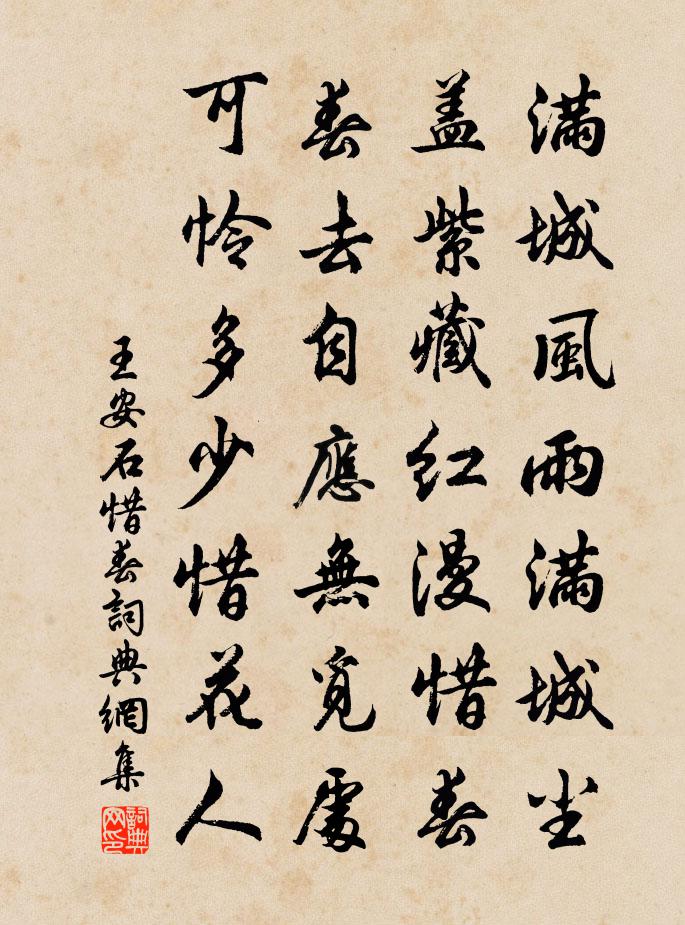 滿城風雨滿城尘
盖紫藏紅漫惜春
春去自應無覓處
可怜多少惜花人
王安石惜春詞典網集
詞典网印